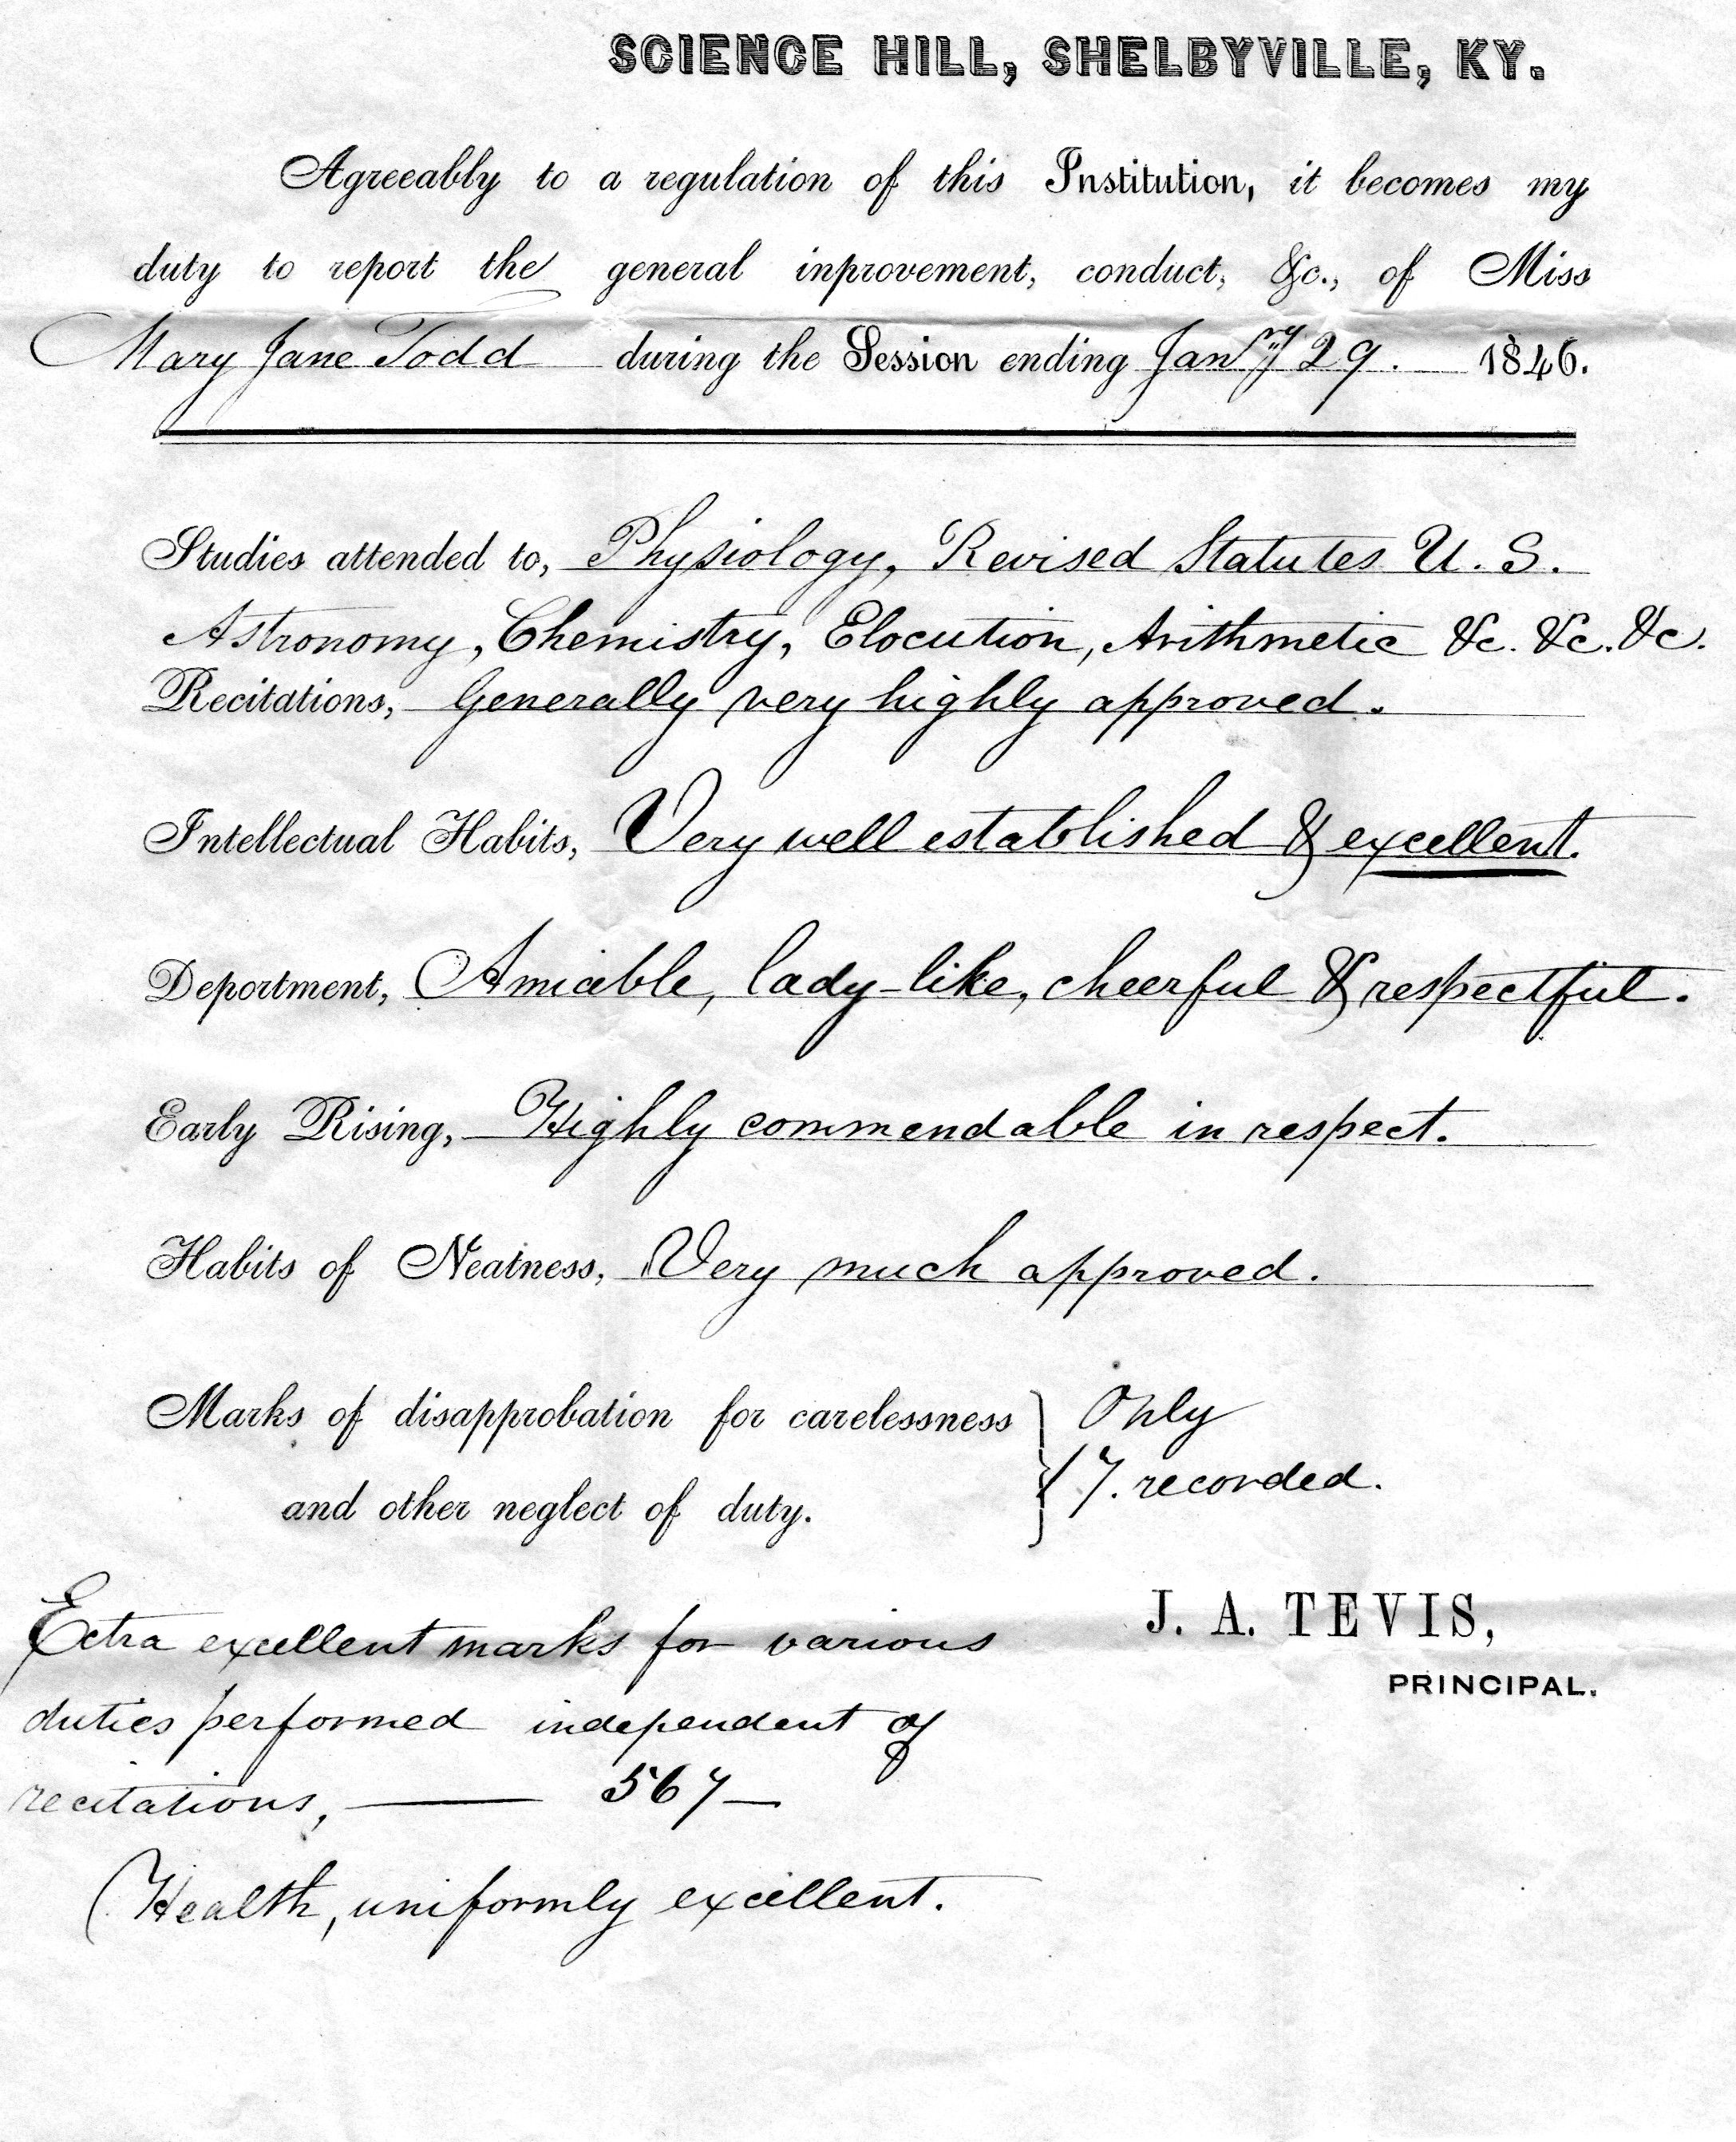 SCIENCE HILL, SHELBYVILLE, KY.
Agreeably to a regulation of this Institution, it becomes my
duty to report the general inprovement, conduct, &c., of Miss
Mary Jane Todd during the Session ending Janry 29. 1846.
Studies attended to, Physiology, Revised Statutes U. S.
Astronomy, Chemistry, Elocution, Arithmetic &c. &c. &c.
Recitations, Generally very highly approved.
Intellectual Habits, Very well established & excellent.
Deportment, Amiable, lady-like, cheerful & respectful.
Early Rising, Highly commendable in respect.
Habits of Neatness, Very much approved.
Marks of disapprobation for carelessness } Only
and other neglect of duty. 7. recorded.
J. A. TEVIS,
PRINCIPAL.
Extra excellent marks for various
duties performed independent of
recitations, — 567 —
Health, uniformly excellent.